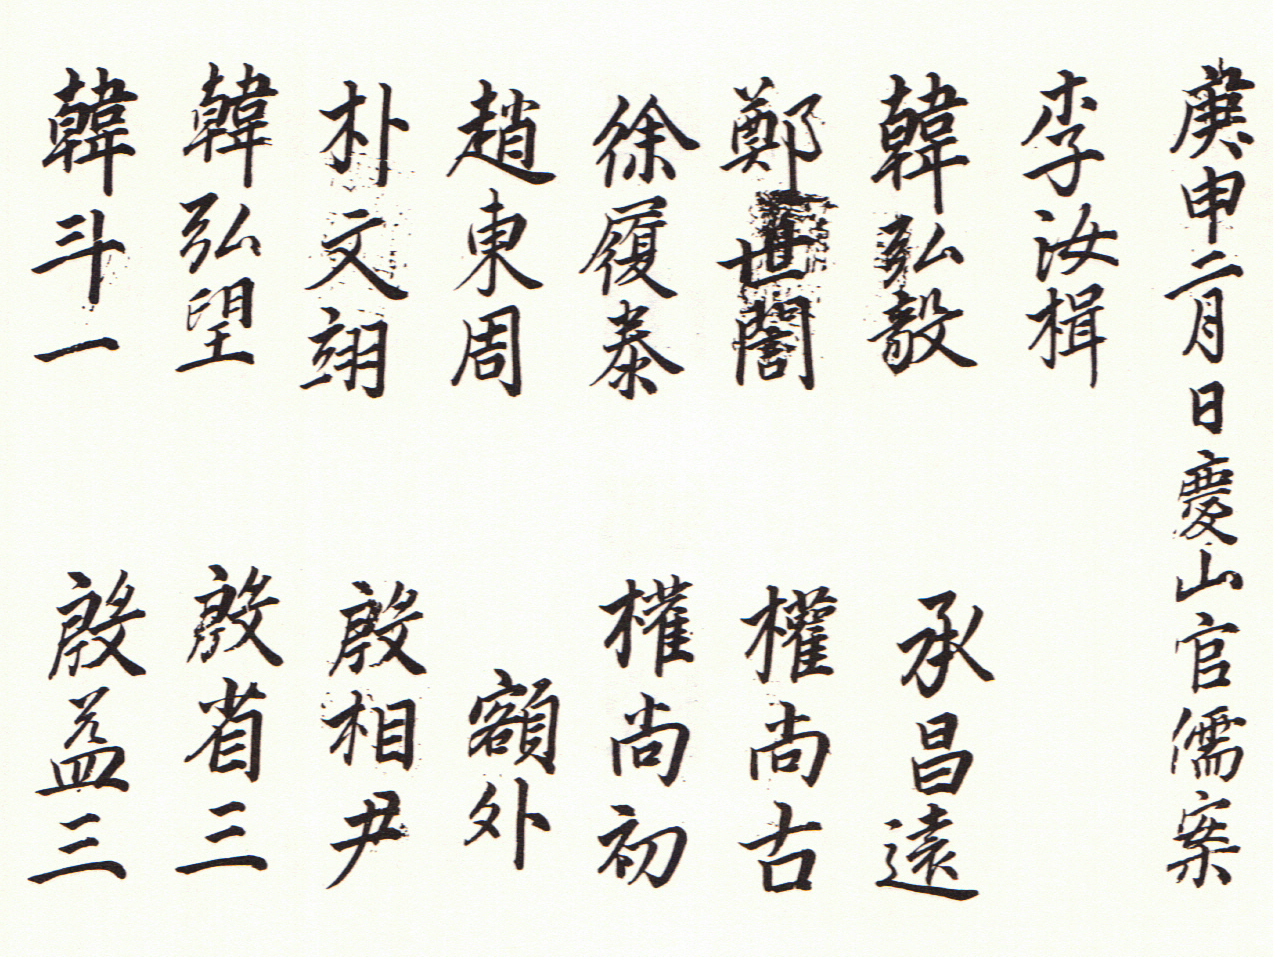 庚申二月日慶山官儒案
李汝楫
韓弘毅
鄭世誾
徐履泰
趙東周
朴文翊
韓弘望
韓斗一
承昌遠
權尚古
權尚初
額外
殷相尹
殷省三
殷益三